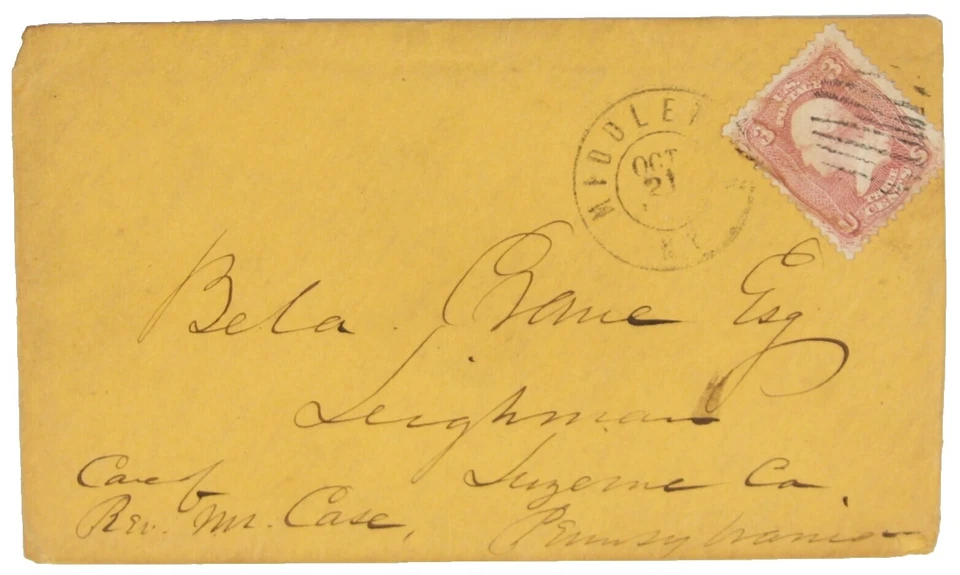 MIDDLET
OCT
21
N.Y.
3 3
U.S. POSTAGE
THREE
CENTS
Bela Crane Esq
Leighman
Luzerne Co.
Pennsylvania
Care of
Rev. Mr. Case,